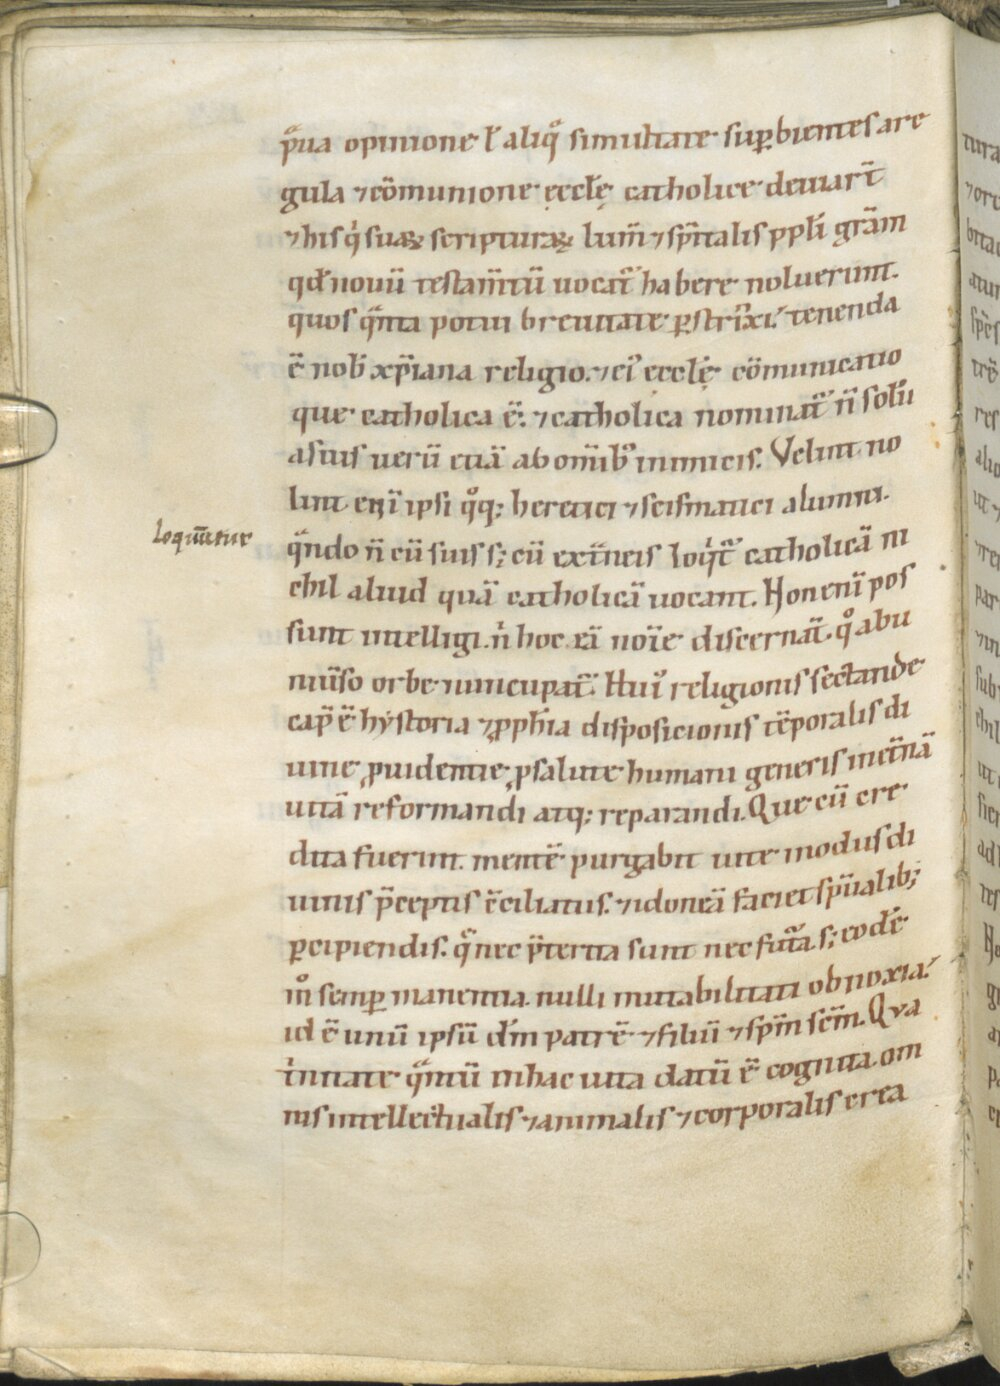 pͣua opinione ł aliqͣ simultate suꝑbientes a re
gula ⁊ cōmunione ęccłę catholice deuiar̄t
⁊ his q̇ suaꝝ scripturaꝝ lum̄ ⁊ sp̄italis ppłi grām
qđ nouū testam̄tū uocat᷑ habere noluerunt.
quos qͣnta potui breuitate ꝑstrīxi. tenenda
ē nob̄ xp̄iana religio. ⁊ ei᷒ ęccłę cōmunicatio
que catholica ē. ⁊ catholica nominat᷑ n̄ solū
a suis uerū etiā ab om̄ib᷒ inimicis. Velint no
lint enī ipsi qͦq; heretici ⁊ scismatici alumni.
qͣndo n̄ cū suis s; cū ext̄neis loq̇t᷑ catholicā ni
loquūntur
chil aliud quā catholicā uocant. Non enī pos
sunt intelligi. n̍ hoc eā noīe discernāt. qͦ ab u
niūso orbe nuncupat᷑. Hui᷒ religionis sectande
cap̄ ē hystoria ⁊ ꝓph̄ia disposicionis tēporalis di
uine ꝓuidentie ꝓ salute humani generis in et̄nā
uitā reformandi atq; reparandi. Que cū cre
dita fuerint. mentē purgabit uite modus di
uinis p̄ceptis c̄ciliatus. ⁊ idoneā faciet sp̄ualib;
ꝑcipiendis. qͣ nec p̄terita sunt nec fut̄a. s; eodē
mͦ semꝑ manentia. nulli mutabilitati obnoxia.
id ē unū ipsū dm̄ patrē ⁊ filiū ⁊ sp̄m sc̄m. Qua
t̍nitate qͣntū in hac uita datū ē cognita. om
nis intellectualis ⁊ animalis ⁊ corporalis crea